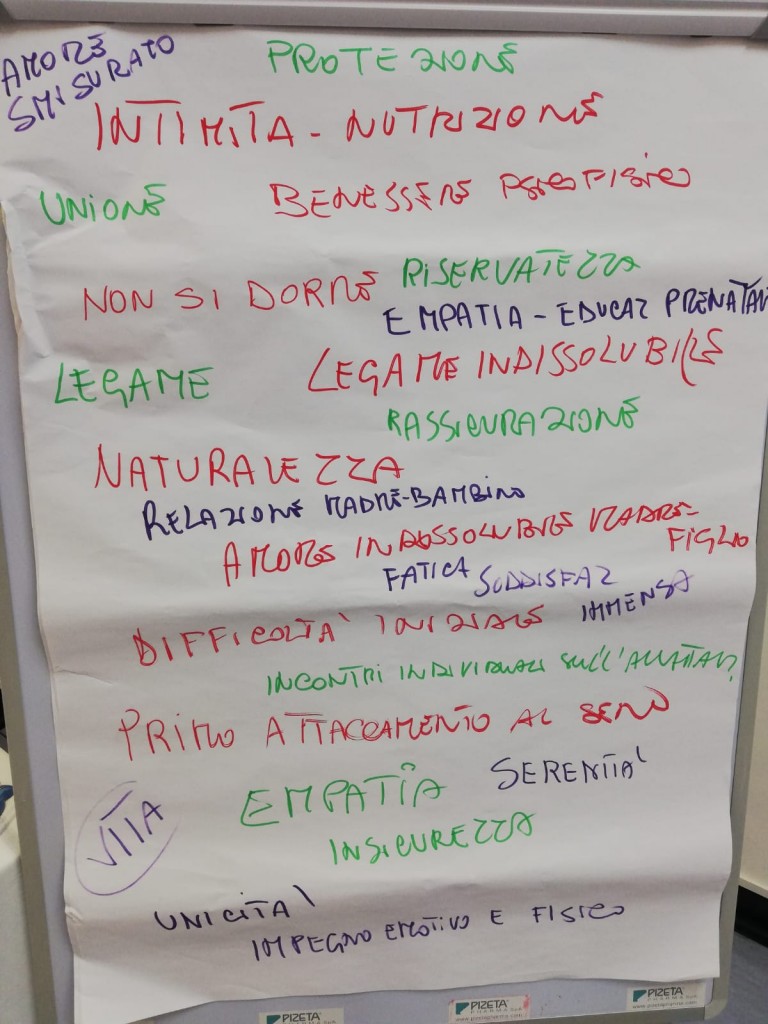 AMORE
SMISURATO
PROTEZIONE
INTIMITA - NUTRIZIONE
UNIONE
BENESSERE PSICOFISICO
NON SI DORME
RISERVATEZZA
EMPATIA - EDUCAZ PRENATAL
LEGAME
LEGAME INDISSOLUBILE
RASSICURAZIONE
NATURALEZZA
RELAZIONE MADRE-BAMBINO
AMORE INDISSOLUBILE MADRE-
FIGLIO
FATICA SODDISFAZ
IMMENSA
DIFFICOLTA' INIZIALE
INCONTRI INDIVIDUALI SULL'ALLATTAM
PRIMO ATTACCAMENTO AL SENO
EMPATIA
SERENITA'
VITA
INSICUREZZA
UNICITA'
IMPEGNO EMOTIVO E FISICO
PIZETA
PIZETA
PHARMA
PIZETA
PHARMA